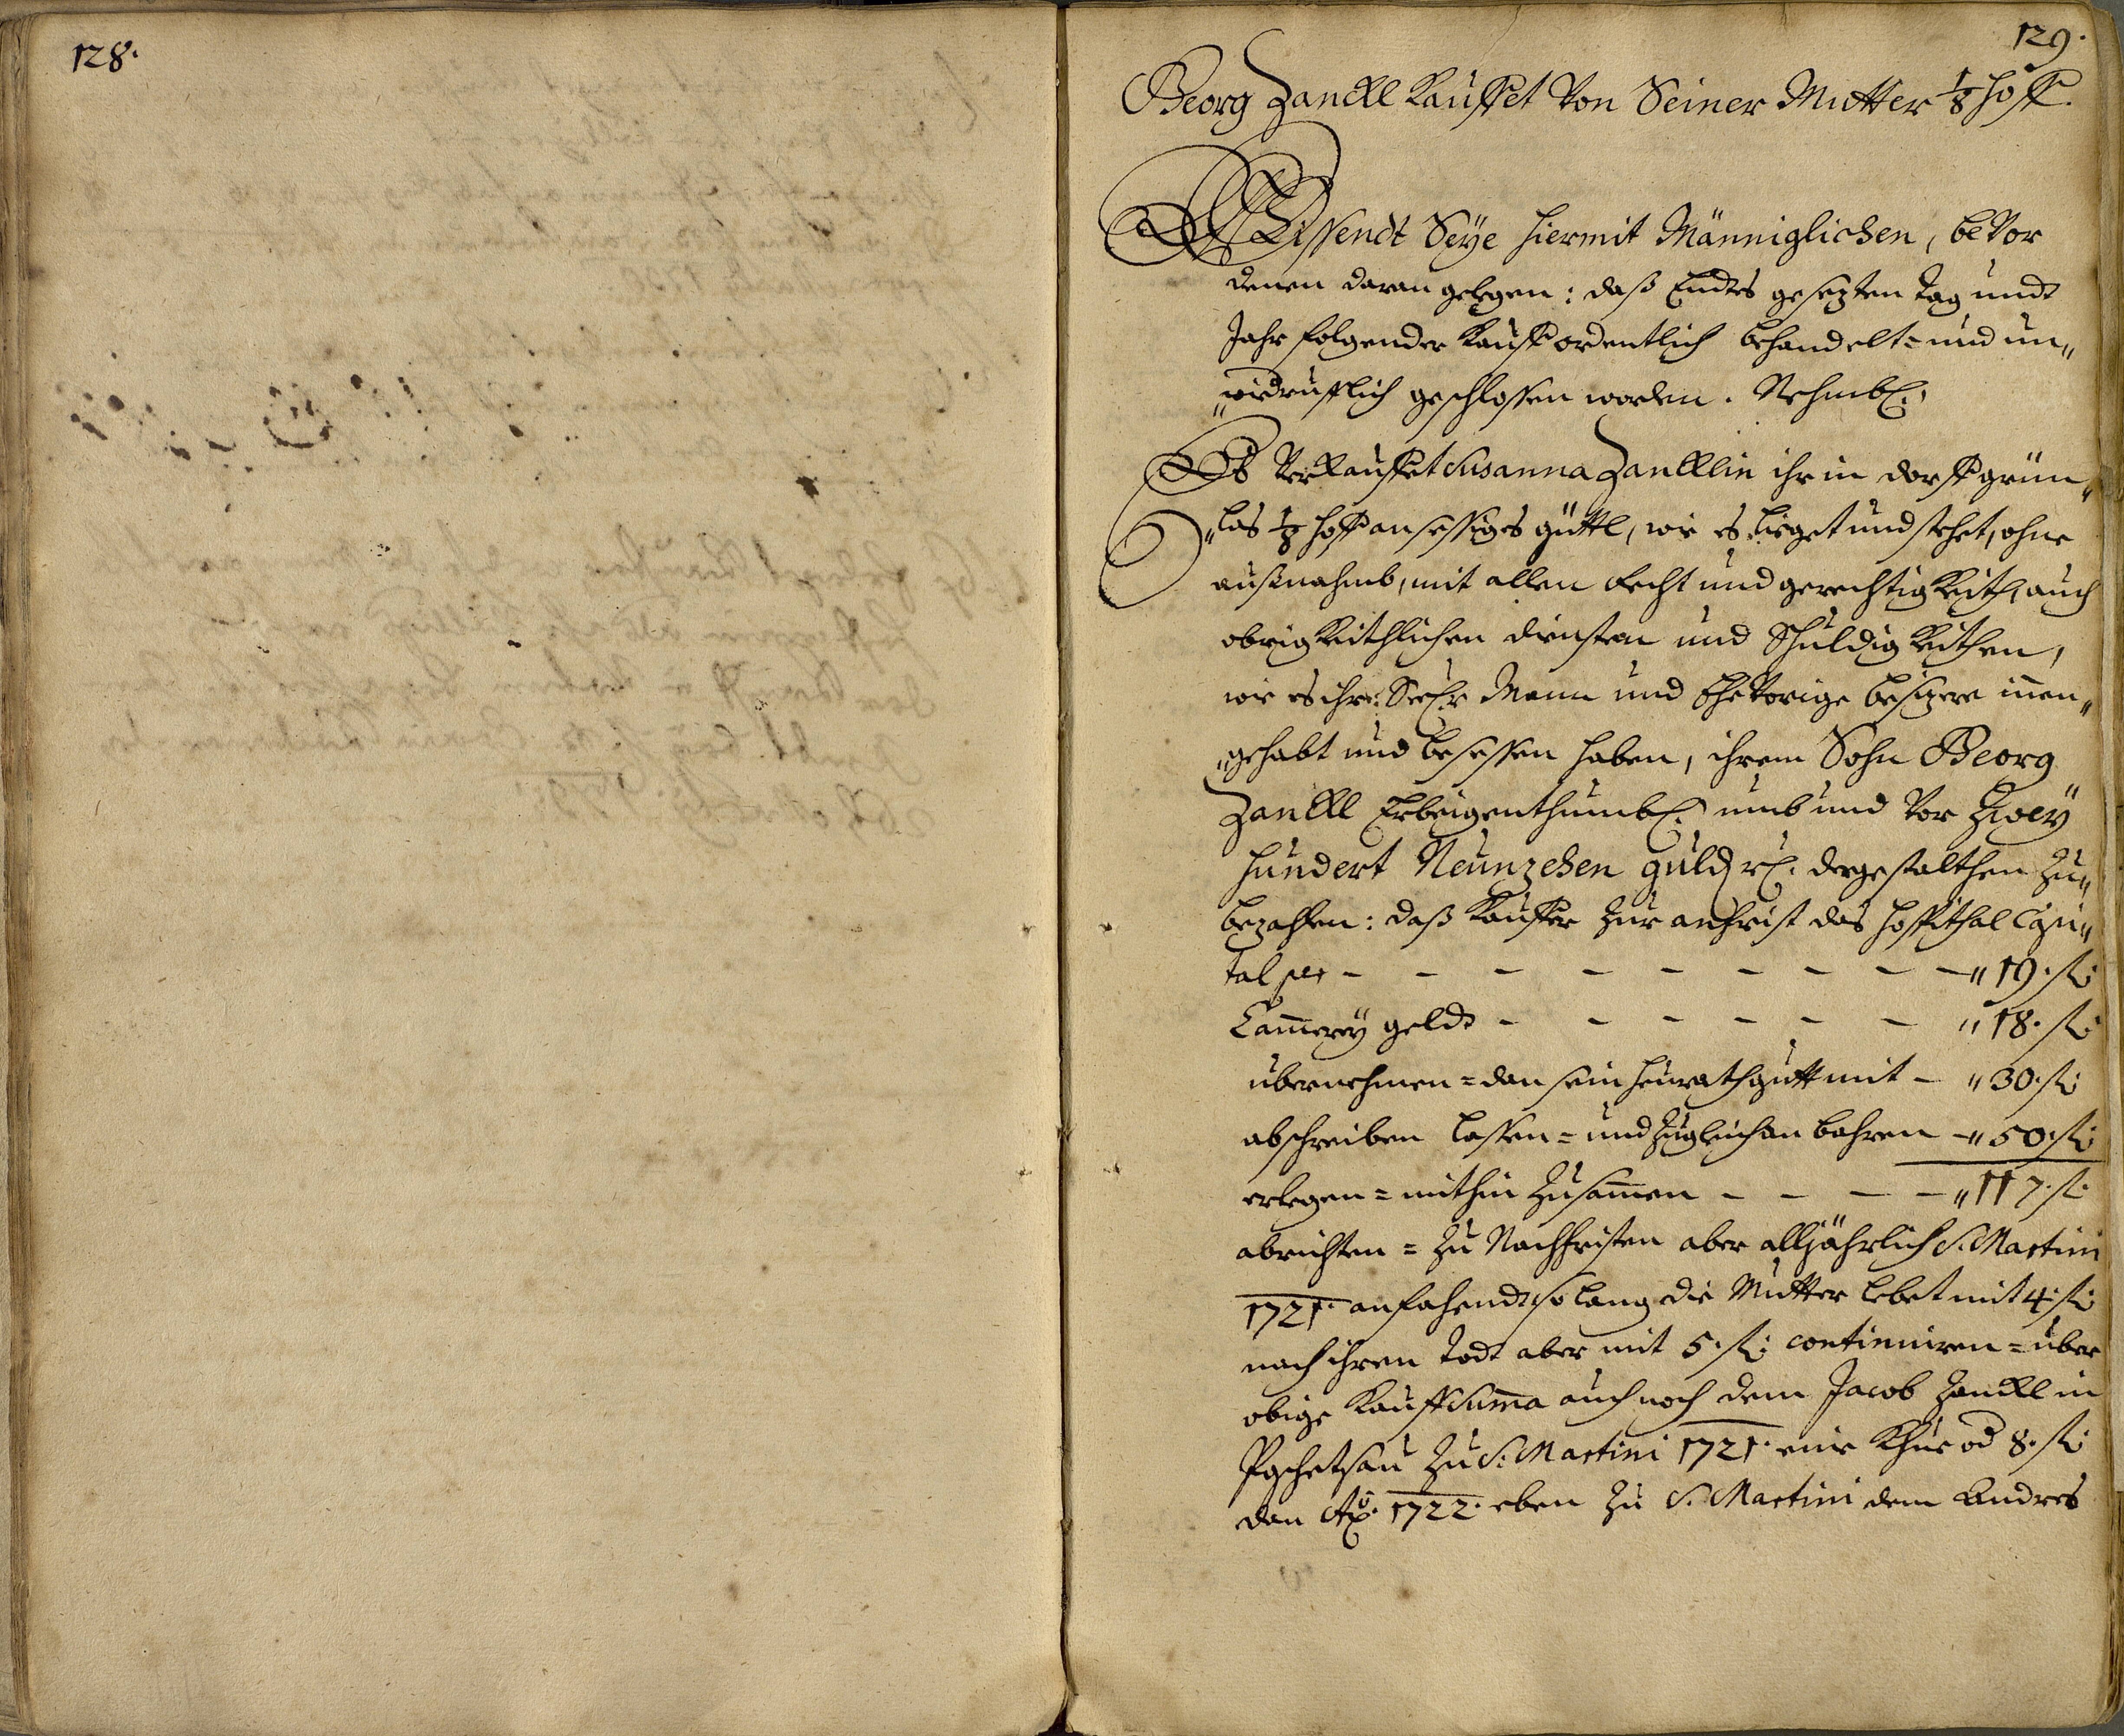 128.
129.
Georg Zanckl Kauffet Von Seiner Mutter 1/8 hoff.
Wissendt Seÿe hiermit Männiglichen, beVor
denen daran gelegen: daß Endts gesezten tag undt
Jahr folgender Kauff ordentlich behandelt= und un„
„widrufflich geschlossen worden. Nehmbl:
Es Verkauffet Susanna Zancklin ihr in dorff grün„
„las 1/8 hoff ansessiges güttl, wie es lieget und stehet, ohne
außnahmb, mit allen recht und gerechtigkeith, auch
obrigkeithlichen diensten und Schuldigkeithen,
wie es ihr Seel: Mann und Ehevorige besizere innen„
„gehabt und besessen haben, ihrem Sohn Georg
Zanckl Erbeigenthumbl: umb und Vor Zweÿ
hundert Neunzehen guld: rl: dergestalthen zu„
bezahlen: daß Kauffer zur anfrist das hospithal Capi„
tal per - - - - - - - - „ 19. fl:
Cammereÿ geldt - - - - - - „ 18. fl:
übernehmen= dan sein heÿrathgutt mit - „ 30. fl:
abschreiben lassen= und zugleich an bahren - „ 50. fl:
erlegen= mithin zusammen - - - - „ 117. fl.
abrichten= zu Nachfristen aber alljährlich S. Martini
1721. anfahendt so lang die Mutter lebet mit 4. fl:
nach ihren todt aber mit 5. fl: continuiren= über
obige Kauff Summa auch noch dem Jacob Zanckl in
zu S: Martini 1721. eine Khue od 8. fl:
dan Ao. 1722. eben zu S. Martini dem Andres